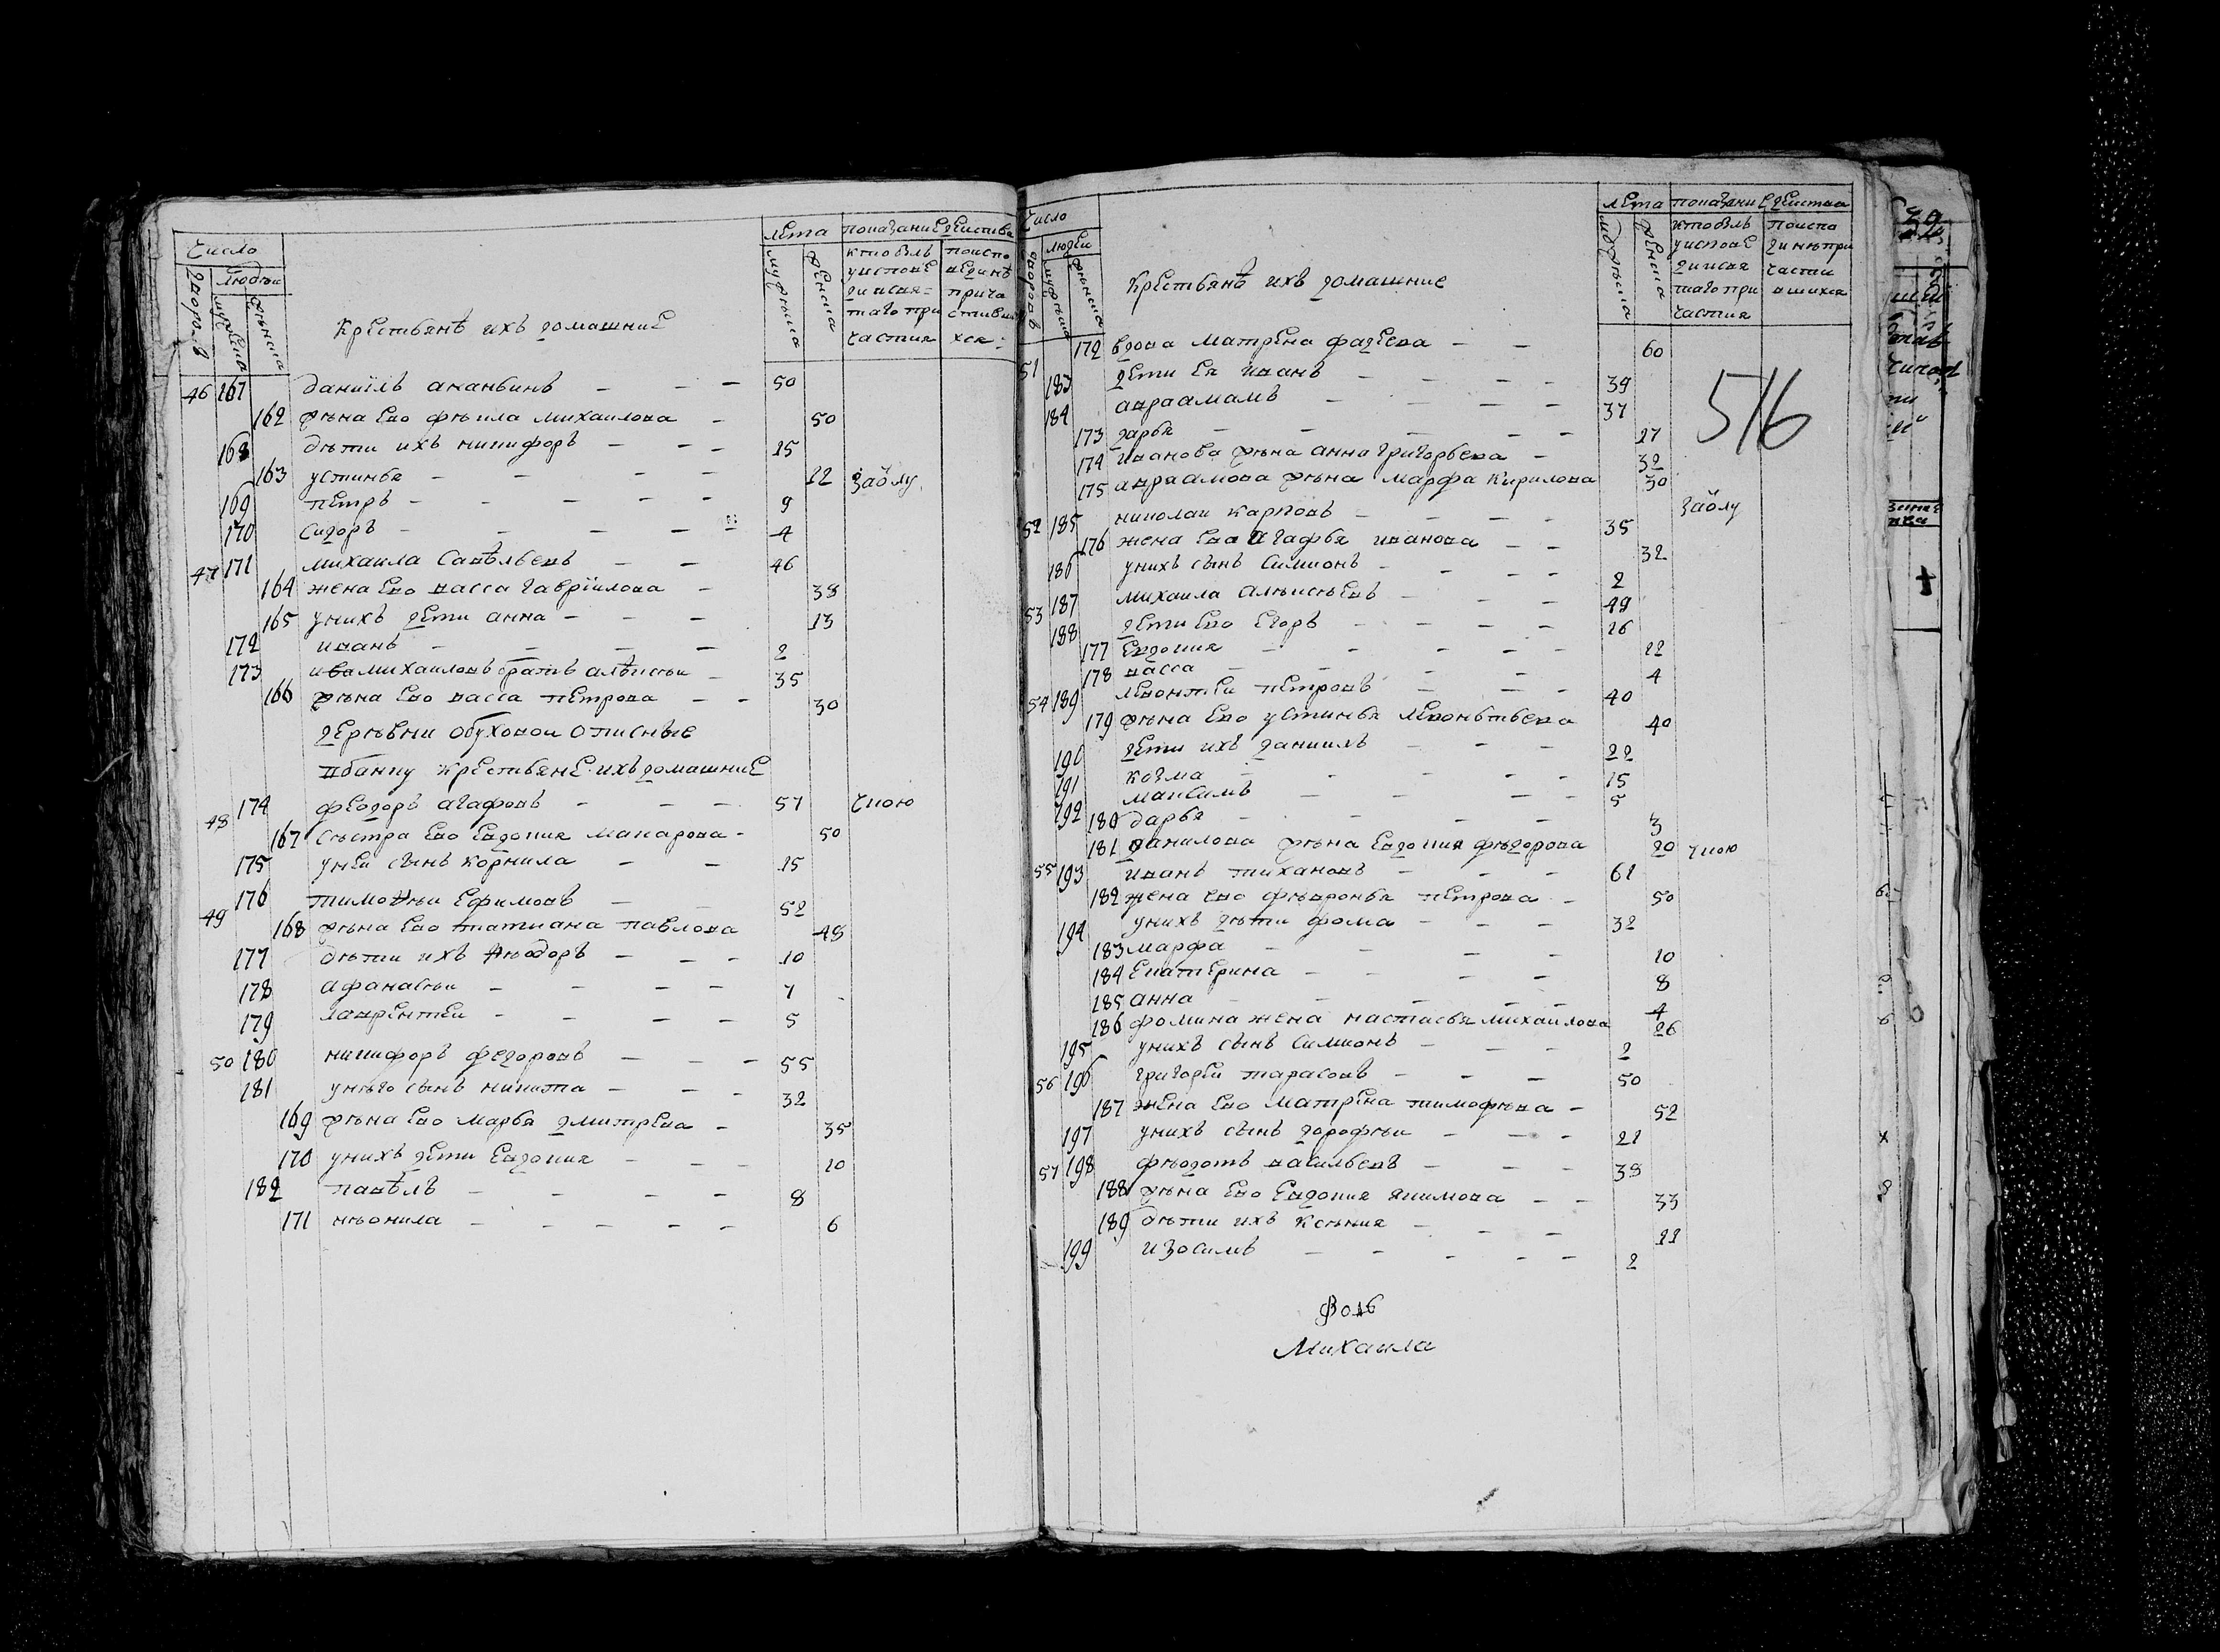 Число
дворов
людей
мужеска
женска
Крестьянѣ ихъ домашние
лета
мужеска
женска
показание действа
кто былъ у исповедии свя- таго при частия
по исповединѣ прича стивши хся:
46 167 даниїлъ ананьинъ — — — 50
162 жѣна Ево фѣкла михаилова — 50
168 дѣти ихъ никифоръ — — — 15
163 устинья — — — — 12
169 пѣтръ — — — — — 9
170 сидоръ — — — — — 4
47 171 михаила Савѣльевъ — — 46
164 жена Ево васса гаврїилова — 38
165 у нихъ дети анна — — — 13
172 иванъ — — — — 2
173 михаиловъ братъ алѣксѣи — 35
166 жѣна Ево васса петрова — — 30
дерѣвни Обуховои Описные
к банку крестьяне ихъ домашние
48 174 феодоръ агафонъ — — — 57
167 сѣстра Ево Евдокия макарова — 50
175 у неи сынъ корнила — — 15
49 176 тимоѳѣи Ефимовъ — — 52
168 жѣна Ево татиана павлова 48
177 дѣти ихъ ѳѣодоръ — — — 10
178 афанасѣи — — — — 7
179 лаврентеи — — — — 5
50 180 никифоръ федоровъ — — — 55
181 у нѣго сынъ никита — — — 32
169 жѣна Ево марья дмитрева — 35
170 у нихъ дети Евдокия — — — 10
182 павѣлъ — — — — 8
171 нѣонила — — — — — 6
Число
дворовъ
людеи
мужеска
женска
Крестьянѣ ихъ домашние
лета
мужеска
женска
показание действа
кто былъ у исповедии свя таго при частия
по испо динѣ при части вшихся
172 вдова матрена фадеева — — 60
51 183 дети ея иванъ — — — — 39
184 авраамамъ — — — — 37
173 дарья — — — — — 27
174 иванова жѣна анна григорьева — 32
175 авраамова жѣна марфа кирилова 30
516
52 185 николаи карповъ — — — — 35
176 жена Ево агафья иванова — — 32
186 у нихъ сынъ симионъ — — — — 2
53 187 михаила алѣксѣевъ — — — 49
188 дети Ево Егоръ — — — — 16
177 Евдокия — — — — — 12
178 васса — — — — 4
54 189 левонтеи петровъ — — — 40
179 жѣна Ево устинья левоньтьева 40
190 дети ихъ даниилъ — — — 22
191 козма — — — — — 15
192 максимъ — — — — 5
180 дарья — — — — 3
181 данилова жѣна Евдокия фѣдорова 20
55 193 иванъ тихановъ — — — 61
182 жена ево фѣвронья петрова — 50
194 у нихъ дѣти фома — — — 32
183 марфа — — — — 10
184 Екатерина — — — — 8
185 анна — — — — 4
186 фомина жена настасья михаилова 26
195 у нихъ сынъ симионъ — — — 2
56 196 григореи тарасовъ — — — 50
187 жена Ево матрена тимофѣва — 52
197 у нихъ сынъ дорофѣи — — — 21
57 198 фѣодотъ васильевъ — — — 38
188 жѣна Ево Евдокия якимова — — 33
189 дѣти ихъ ксѣния — — — 11
199 изосимъ — — — — — 2
Михаила